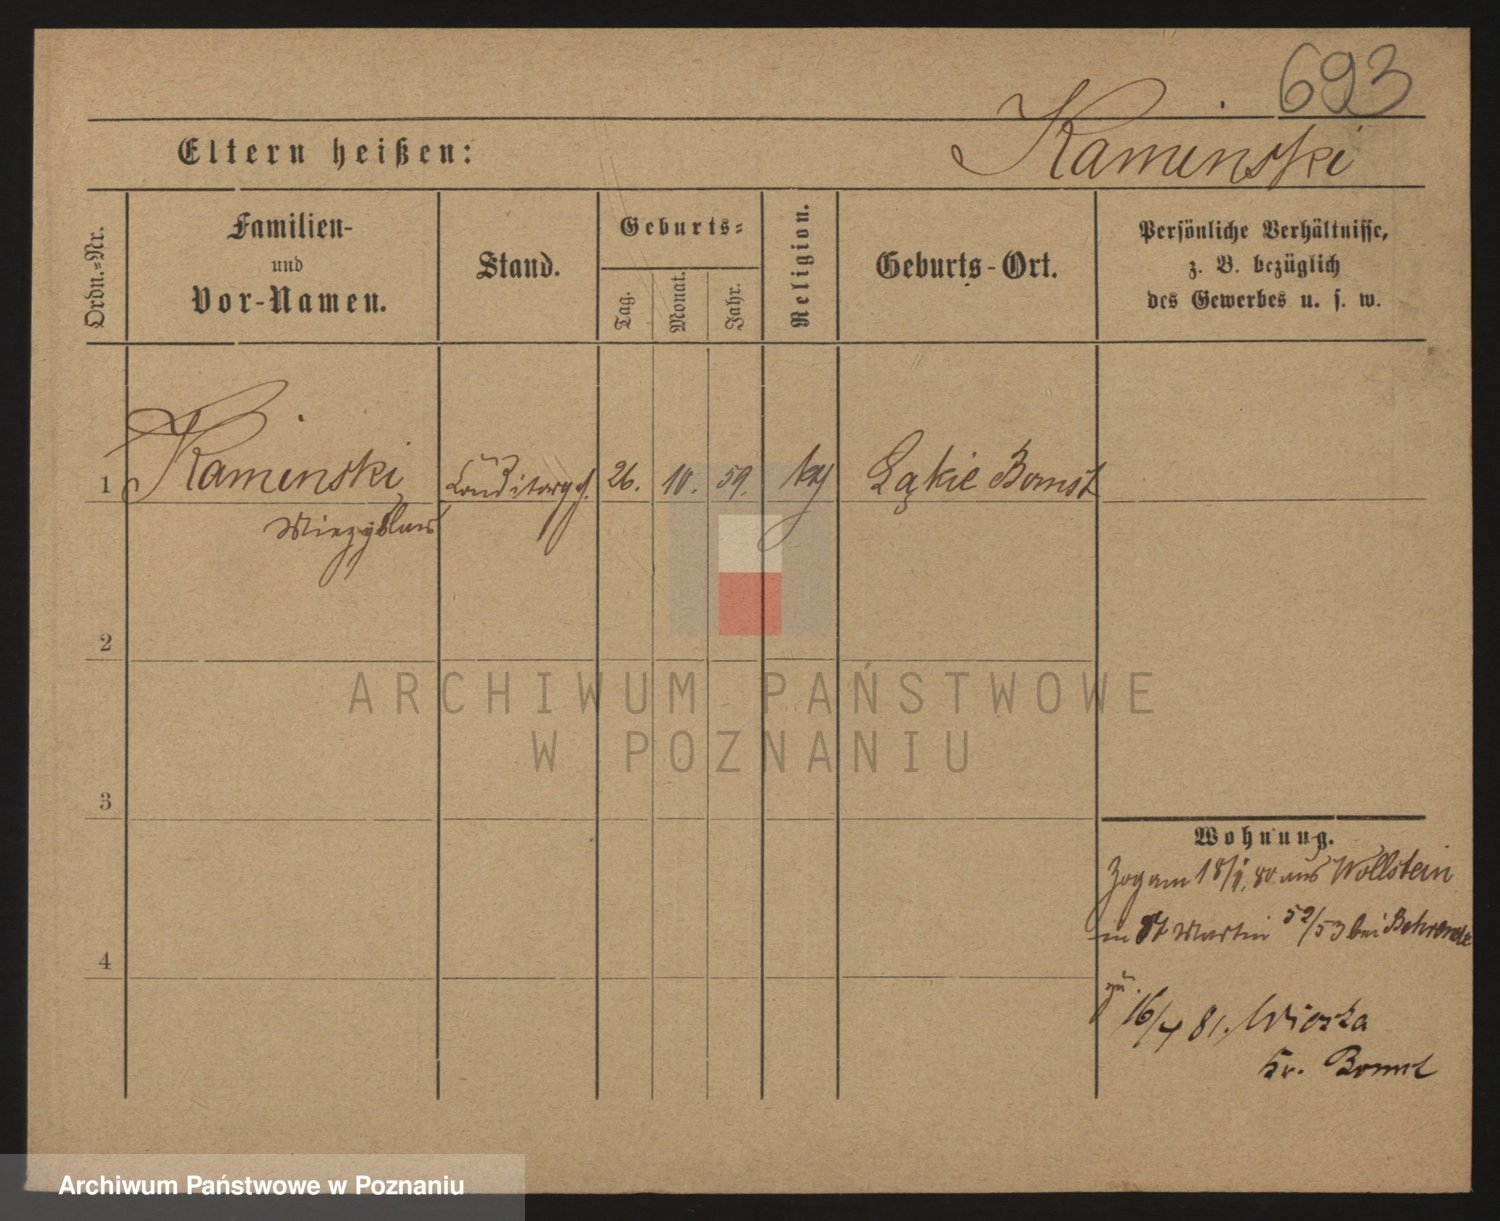 693
Kaminski
Eltern heißen:
Ordn.=Nr.
Familien-
und
Vor-Namen.
Stand.
Geburts=
Tag.
Monat.
Jahr.
Religion.
Geburts-Ort.
Persönliche Verhältnisse,
z. B. bezüglich
des Gewerbes u. s. w.
1 Kaminski Conditorgh. 26. 10. 59. Łąkie Bomst
2
3
4
Wohnung.
Zog am 18/1. 80 aus Wollstein
in St Martin 52/53 bei
16/4 81.
Kr. Bomst
ARCHIWUM PAŃSTWOWE
W POZNANIU
Archiwum Państwowe w Poznaniu